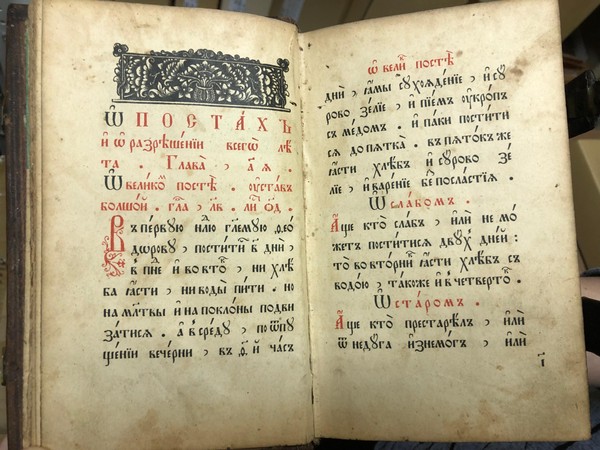 Ѡ ПОСТАХЪ
и҆ ѡ҆ разрѣшенїи всегѡ̀ лѣ
та . Глава̀ , а҃ .
Ѡ҆ велико́мъ постѣ̀ . оу҆ста́въ
большо́й . гла̀ , л҃в . ли́сть ѻ҃д .
Въ пе́рвую недѣ́лю гл҃емую ѳео
дѡ́рову , пости́тисѧ в҃ днѝ ,
є҆́же в̾ пн҃е и҆ во вто́ , ни хлѣ́
ба ꙗ҆́сти , ни воды̀ пи́ти . но
на мл҃твы и҆ на покло́ны подви
за́тисѧ . А҆ в̾ сре́ду , по ѿпу
ще́нїи вече́рни , въ ѳ҃ й ча́съ
ѡ҆ вели́ постѣ̀
днѝ , ꙗ҆́мы сꙋхоꙗде́нїе , и҆ сꙋ
рово зе́лїе , и҆ пїе́мъ оу҆кро́пъ
съ ме́домъ . и҆ па́ки пости́ти
сѧ до пѧтка̀ . въ пѧто́къ же
ꙗ҆́сти хлѣ́бъ и҆ сꙋ́рово зе́
лїе , и҆ варе́нїе бе посла́стїѧ .
Ѡ҆ сла́бомъ .
А҆́ще кто̀ сла́бъ , и҆лѝ не мо́
жетъ пости́тисѧ двꙋ́хъ дне́й :
то̀ во вто́рни ꙗ҆́сти хлѣ́бъ съ
водо́ю , та́коже и҆ в̾ четверто́ .
Ѡ҆ ста́ромъ .
А҆́ще кто̀ престарѣ́лъ , и҆лѝ
ѿ недꙋ́га и҆знемо́гъ , и҆лѝ
і҃